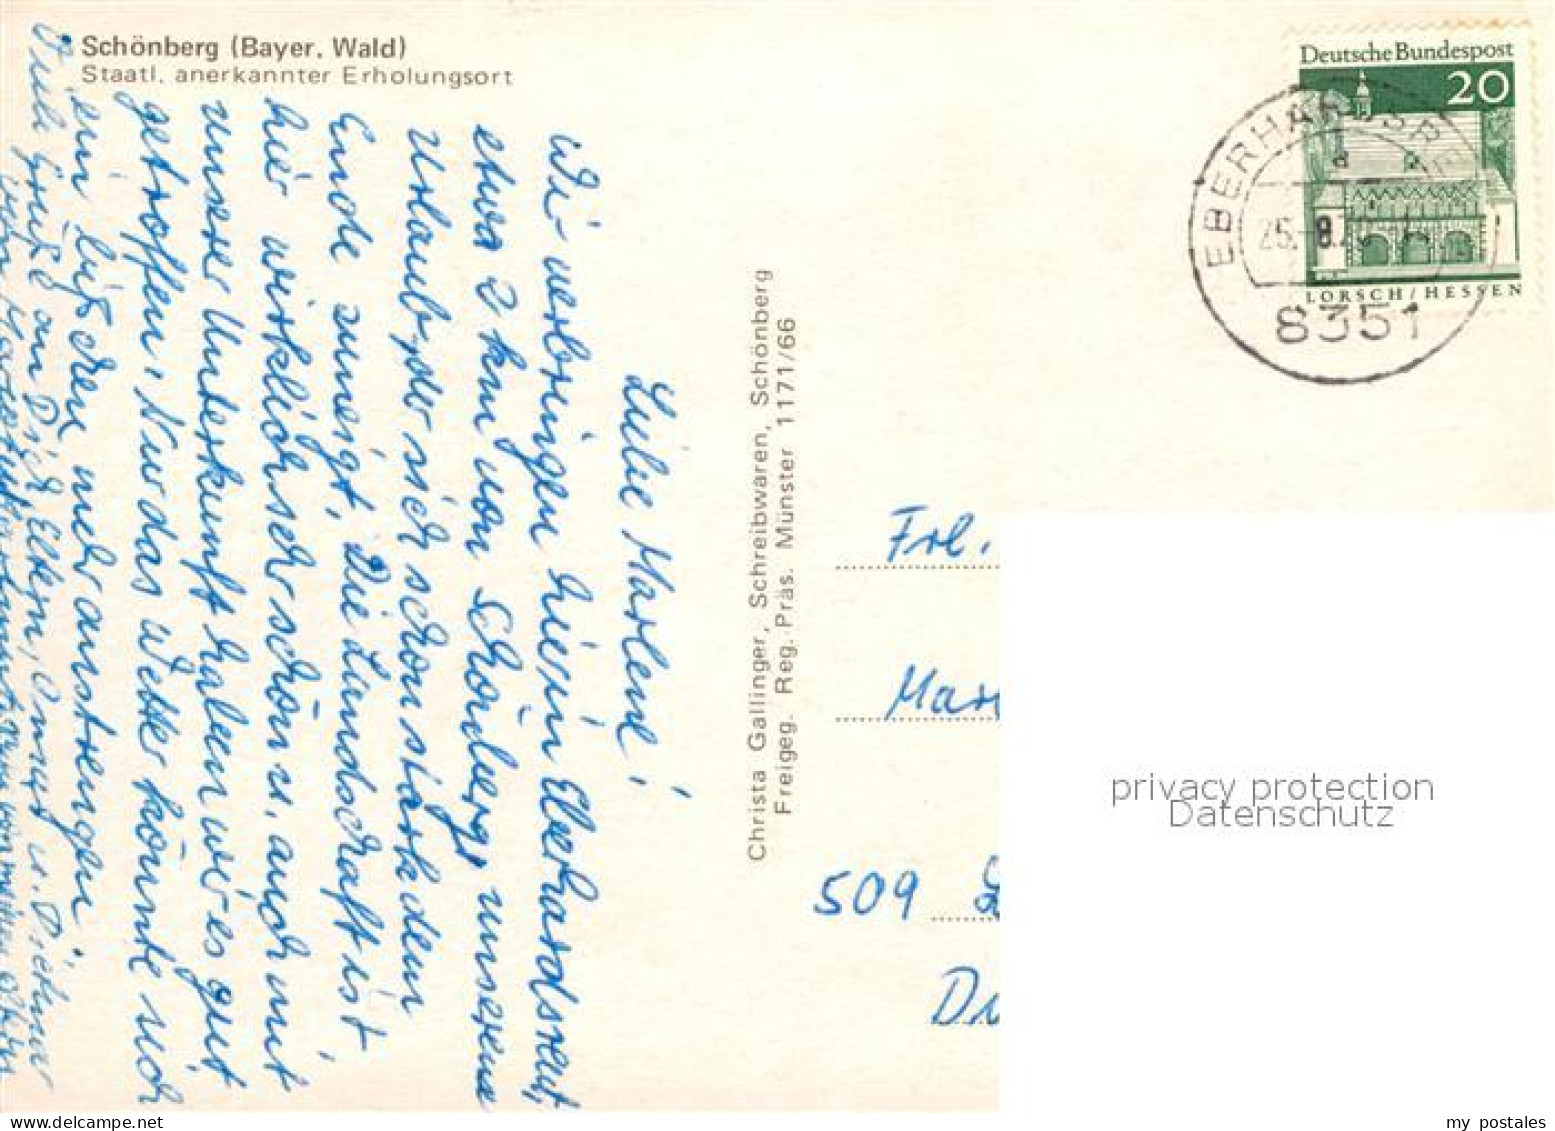 Schönberg (Bayer. Wald)
Staatl. anerkannter Erholungsort
Deutsche Bundespost
20
LORSCH / HESSEN
8351
Liebe Marlene!
Wir verbringen hier in Eberhardsreut,
etwa 2 km von Schönberg, unseren
Urlaub, der sich schon stark dem
Ende zuneigt. Die Landschaft ist
hier wirklich sehr schön u. auch mit
unserer Unterkunft haben wir es gut
getroffen. Nur das Wetter könnte sich
ein bißchen mehr anstrengen.
Viele Grüße an Dich, Eltern, u. Dietmar
Christa Gallinger, Schreibwaren, Schönberg
Freigeg. Reg. Präs. Münster 1171/66
Frl.
Mar
509
privacy protection
Datenschutz
my postales